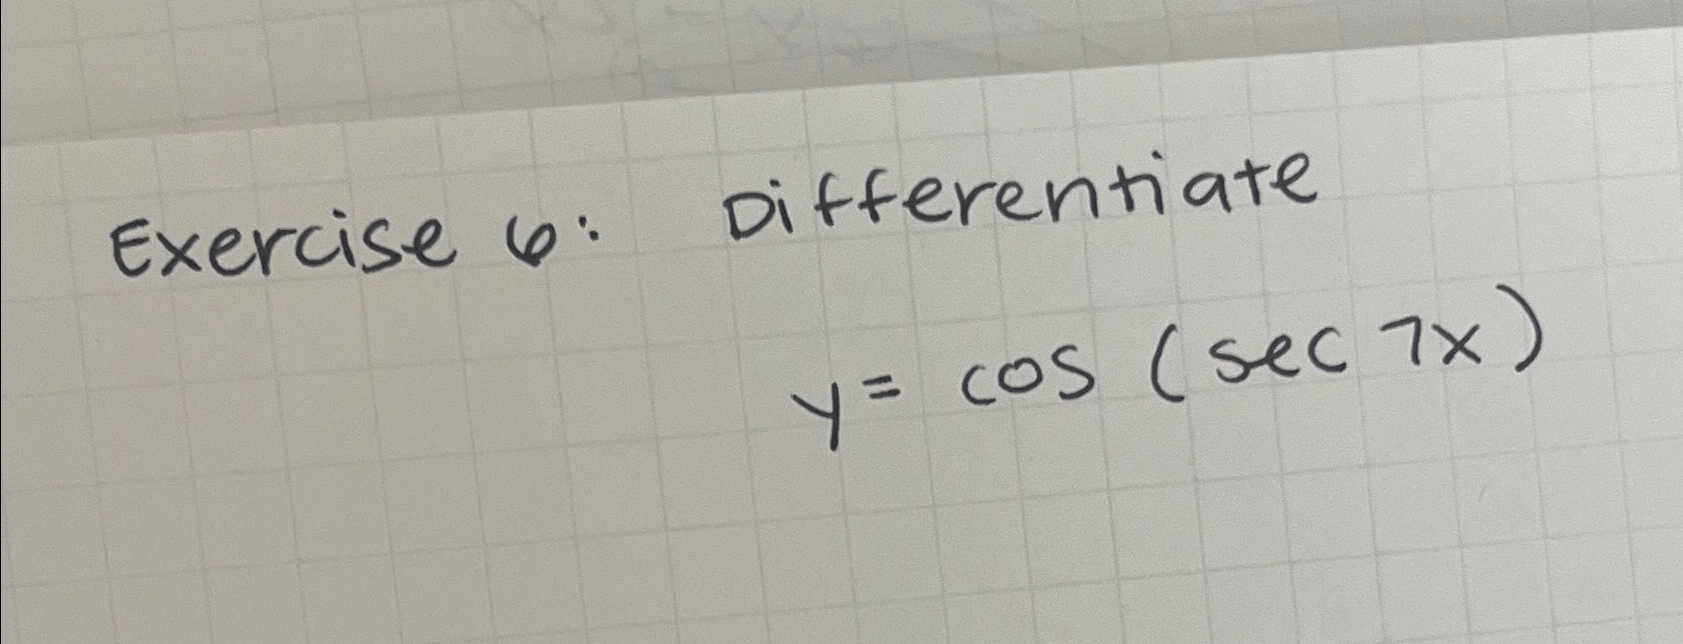 Exercise 6: Differentiate
y = cos (sec 7x)